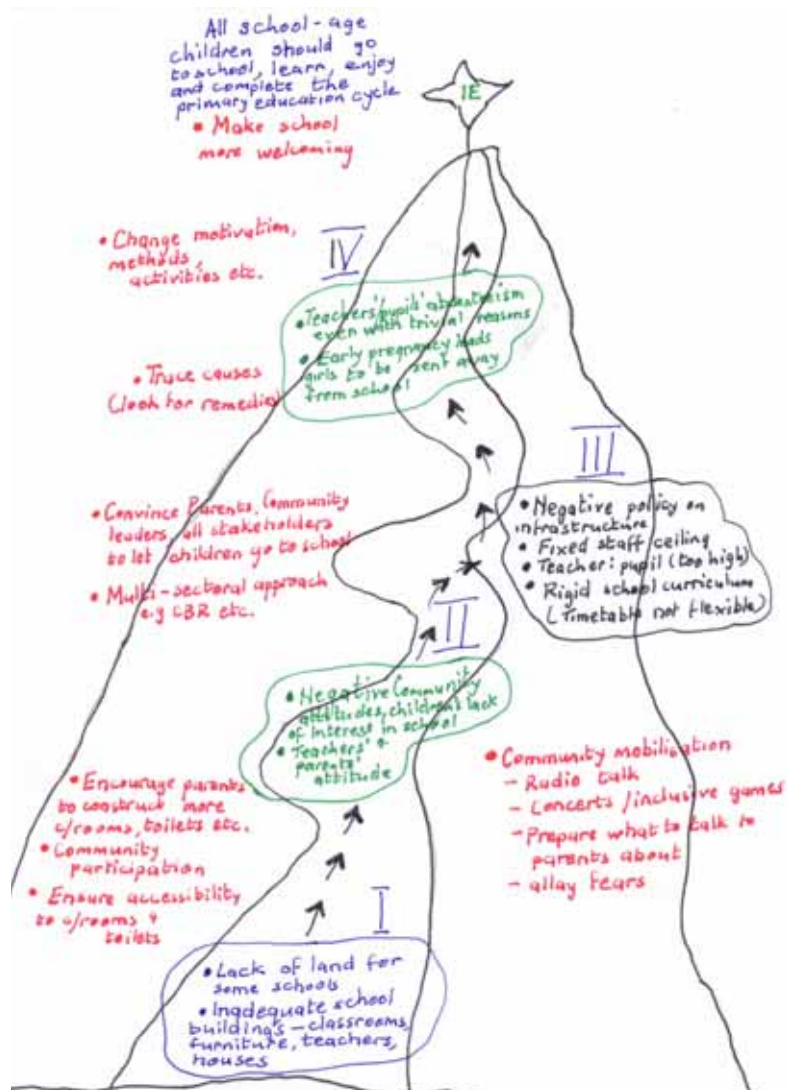 All school-age
children should go
to school, learn, enjoy
and complete the
primary education cycle
IE
• Make school
more welcoming
• Change motivation,
methods,
activities etc.
IV
• Teachers'/pupils' absenteeism
even with trivial reasons
• Early pregnancy leads
girls to be sent away
from school
• Trace causes
(look for remedies)
III
• Negative policy on
infrastructure
• Fixed staff ceiling
• Teacher: pupil (too high)
• Rigid school curriculum
(Timetable not flexible)
• Convince Parents, Community
leaders, all stakeholders
to let children go to school
• Multi-sectoral approach
e.g CBR etc.
II
• Negative Community
attitudes, children's lack
of interest in school
• Teachers' &
parents'
attitude
• Encourage parents
to construct more
c/rooms, toilets etc.
• Community
participation
• Ensure accessibility
to c/rooms &
toilets
• Community mobilisation
- Radio talk
- Concerts/inclusive games
- Prepare what to talk to
parents about
- allay fears
I
• Lack of land for
some schools
• Inadequate school
buildings - classrooms,
furniture, teachers,
houses